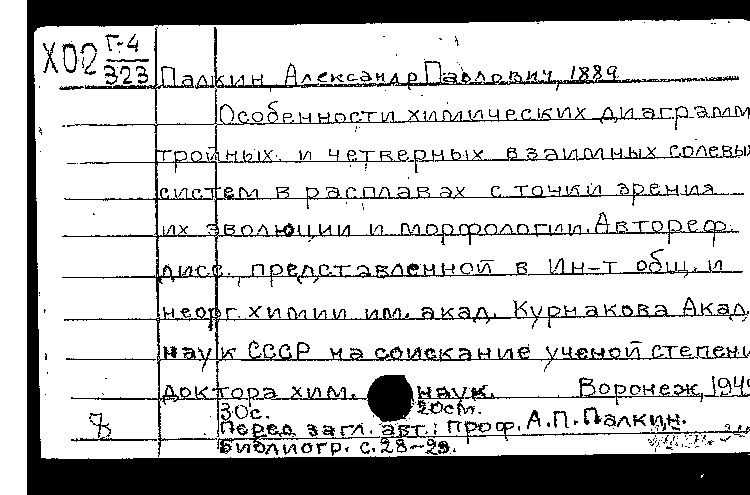 Х02 Г-4
323
Палкин, Александр Павлович, 1889
Особенности химических диаграмм
тройных и четверных взаимных солевых
систем в расплавах с точки зрения
их эволюции и морфологии. Автореф.
дисс., представленной в Ин-т общ. и
неорг. химии им. акад. Курнакова Акад.
наук СССР на соискание ученой степени
доктора хим. наук. Воронеж, 1949
30с. 20см.
Перед загл. авт.: проф. А.П. Палкин.
Библиогр. с. 28-29.